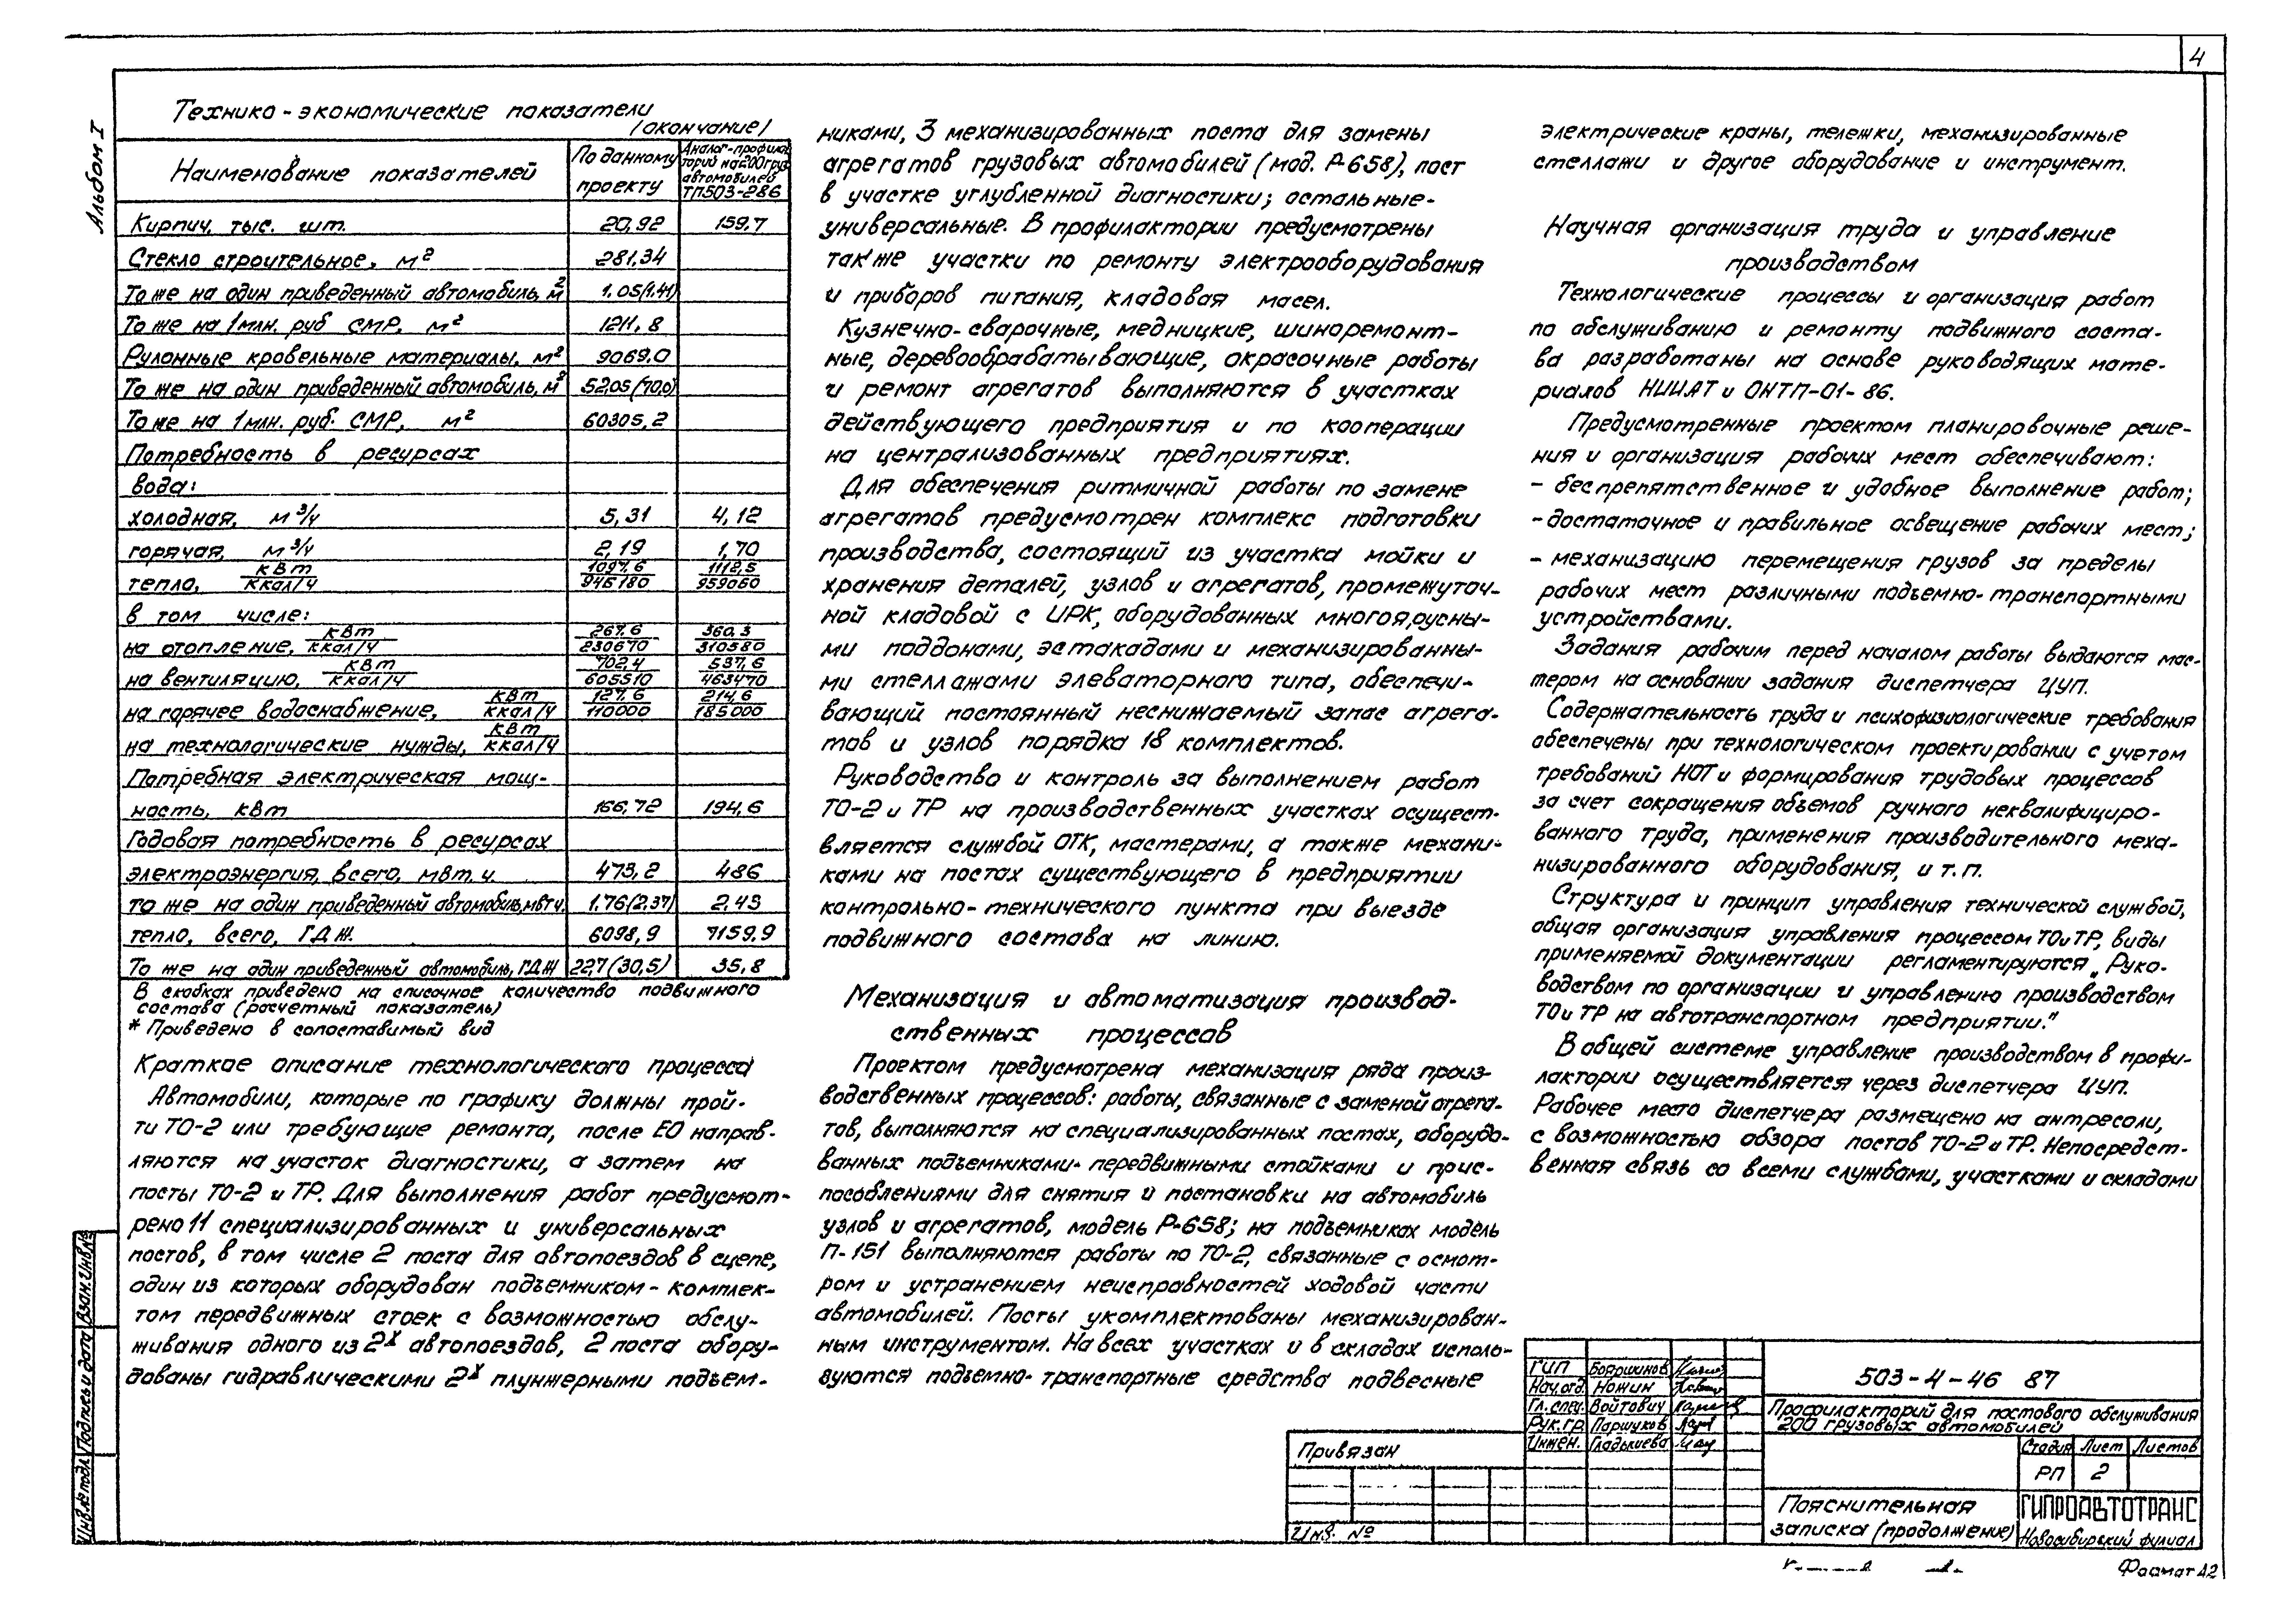 4
Альбом I
Технико-экономические показатели
(окончание)
Наименование показателей | По данному проекту | Аналог-профилакторий на 200 груз. автомобилей ТП503-286
Кирпич, тыс. шт. | 20,92 | 159,7
Стекло строительное, м² | 281,34
То же на один приведенный автомобиль, м² | 1.05(1.41)
То же на 1 млн. руб СМР, м² | 1211,8
Рулонные кровельные материалы, м² | 9069,0
То же на один приведенный автомобиль, м² | 52,05(70,0)
То же на 1 млн. руб. СМР, м² | 60305,2
Потребность в ресурсах
вода:
холодная, м³/ч | 5,31 | 4,12
горячая, м³/ч | 2,19 | 1,70
тепло, кВт/ккал/ч | 1097,6/945180 | 1112,5/959060
в том числе:
на отопление, кВт/ккал/ч | 267,6/230670 | 360,3/310580
на вентиляцию, кВт/ккал/ч | 702,4/605510 | 537,6/463470
на горячее водоснабжение, кВт/ккал/ч | 127,6/110000 | 214,6/185000
на технологические нужды, кВт/ккал/ч
Потребная электрическая мощ-
ность, кВт | 166,72 | 194,6
Годовая потребность в ресурсах
электроэнергия, всего, мвт.ч. | 473,2 | 486
то же на один приведенный автомобиль, мвт ч. | 1.76(2,37) | 2,43
тепло, всего, ГДж. | 6098,9 | 7159,9
То же на один приведенный автомобиль, ГДж | 22,7(30,5) | 35,8
В скобках приведено на списочное количество подвижного
состава (расчетный показатель)
* Приведено в сопоставимый вид
Краткое описание технологического процесса
Автомобили, которые по графику должны прой-
ти ТО-2 или требующие ремонта, после ЕО направ-
ляются на участок диагностики, а затем на
посты ТО-2 и ТР. Для выполнения работ предусмот-
рено 11 специализированных и универсальных
постов, в том числе 2 поста для автопоездов в сцепе,
один из которых оборудован подъемником-комплек-
том передвижных стоек с возможностью обслу-
живания одного из 2х автопоездов, 2 поста обору-
дованы гидравлическими 2х плунжерными подъем-
никами, 3 механизированных поста для замены
агрегатов грузовых автомобилей (мод. Р-658), пост
в участке углубленной диагностики; остальные-
универсальные. В профилактории предусмотрены
также участки по ремонту электрооборудования
и приборов питания, кладовая масел.
Кузнечно-сварочные, медницкие, шиноремонт-
ные, деревообрабатывающие, окрасочные работы
и ремонт агрегатов выполняются в участках
действующего предприятия и по кооперации
на централизованных предприятиях.
Для обеспечения ритмичной работы по замене
агрегатов предусмотрен комплекс подготовки
производства, состоящий из участка мойки и
хранения деталей, узлов и агрегатов, промежуточ-
ной кладовой с ИРК, оборудованных многоярусны-
ми поддонами, эстакадами и механизированны-
ми стеллажами элеваторного типа, обеспечи-
вающий постоянный неснижаемый запас агрега-
тов и узлов порядка 18 комплектов.
Руководство и контроль за выполнением работ
ТО-2 и ТР на производственных участках осущест-
вляется службой ОТК, мастерами, а также механи-
ками на постах существующего в предприятии
контрольно-технического пункта при выезде
подвижного состава на линию.
Механизация и автоматизация производ-
ственных процессов
Проектом предусмотрена механизация ряда произ-
водственных процессов: работы, связанные с заменой агрега-
тов, выполняются на специализированных постах, оборудо-
ванных подъемниками-передвижными стойками и прис-
пособлениями для снятия и постановки на автомобиль
узлов и агрегатов, модель Р-658; на подъемниках модель
П-151 выполняются работы по ТО-2, связанные с осмот-
ром и устранением неисправностей ходовой части
автомобилей. Посты укомплектованы механизирован-
ным инструментом. На всех участках и в складах исполь-
зуются подъемно-транспортные средства подвесные
электрические краны, тележки, механизированные
стеллажи и другое оборудование и инструмент.
Научная организация труда и управление
производством
Технологические процессы и организация работ
по обслуживанию и ремонту подвижного соста-
ва разработаны на основе руководящих мате-
риалов НИИАТ и ОНТП-01-86.
Предусмотренные проектом планировочные реше-
ния и организация рабочих мест обеспечивают:
- беспрепятственное и удобное выполнение работ;
- достаточное и правильное освещение рабочих мест;
- механизацию перемещения грузов за пределы
рабочих мест различными подъемно-транспортными
устройствами.
Задания рабочим перед началом работы выдаются мас-
тером на основании задания диспетчера ЦУП.
Содержательность труда и психофизиологические требования
обеспечены при технологическом проектировании с учетом
требований НОТ и формирования трудовых процессов
за счет сокращения объемов ручного неквалифициро-
ванного труда, применения производительного меха-
низированного оборудования, и т.п.
Структура и принцип управления технической службой,
общая организация управления процессом ТО и ТР, виды
применяемой документации регламентируются „Руко-
водством по организации и управлению производством
ТО и ТР на автотранспортном предприятии."
В общей системе управление производством в профи-
лактории осуществляется через диспетчера ЦУП.
Рабочее место диспетчера размещено на антресоли,
с возможностью обзора постов ТО-2 и ТР. Непосредст-
венная связь со всеми службами, участками и складами
ГИП Бояршинов
Нач.отд. Ножин
Гл.спец. Войтович
Рук.гр. Паршуков
Инжен.
503-4-46 87
Профилакторий для постового обслуживания
200 грузовых автомобилей
Стадия Лист Листов
РП 2
Пояснительная
записка (продолжение)
ГИПРОАВТОТРАНС
Новосибирский филиал
Привязан
Инв. №
Формат А2
Инв.№ подл. Подпись и дата Взам.инв.№